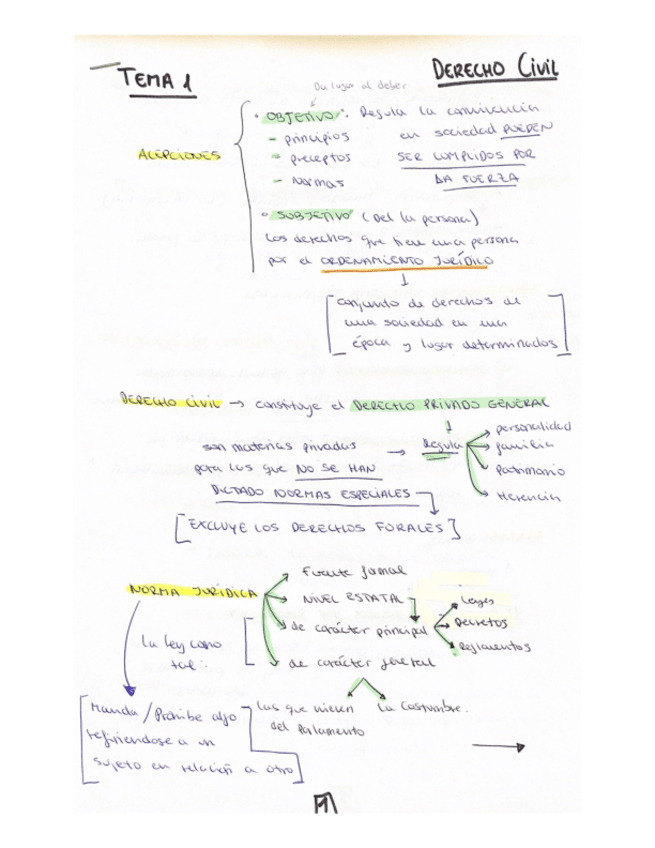 TEMA 1
DERECHO CIVIL
Da lugar al deber
ACEPCIONES
• OBJETIVO: Regula la convivencia
- principios en sociedad PUEDEN
- preceptos SER CUMPLIDOS POR
- Normas LA FUERZA
• SUBJETIVO (Del la persona)
Los derechos que tiene una persona
por el ORDENAMIENTO JURÍDICO
↓
[conjunto de derechos de
una sociedad en una
época y lugar determinados]
DERECHO CIVIL → constituye el DERECHO PRIVADO GENERAL
son materias privadas → Regula
para las que NO SE HAN
DICTADO NORMAS ESPECIALES
personalidad
familia
Patrimonio
Herencia
[EXCLUYE LOS DERECHOS FORALES]
NORMA JURÍDICA
Fuente formal
NIVEL ESTATAL
de carácter principal
Leyes
Decretos
Reglamentos
de carácter general
La ley como
tal:
Las que vienen
del Parlamento
La Costumbre.
[Manda / Prohibe algo
refiriendose a un
sujeto en relación a otro]
1